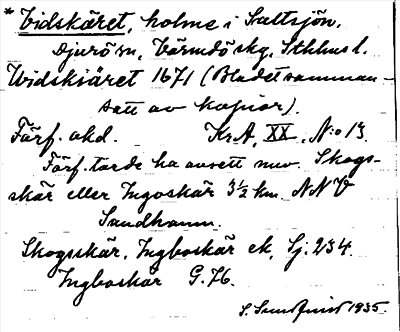 * Vidskäret, holme i Saltsjön.
Djurö sn, Värmdö skg, Sthlms l.
Widskiäret 1671 (Bladet samman-
satt av kopior).
Förf. okd. Kr.A, XX, N:o 13.
Förf. torde ha avsett nuv. Skogs-
skär eller Ingoskär 3½ km NNV
Sandhamn.
Skogsskär, Ingboskär ek, Sj. 234.
Ingboskär G. 76.
1935.